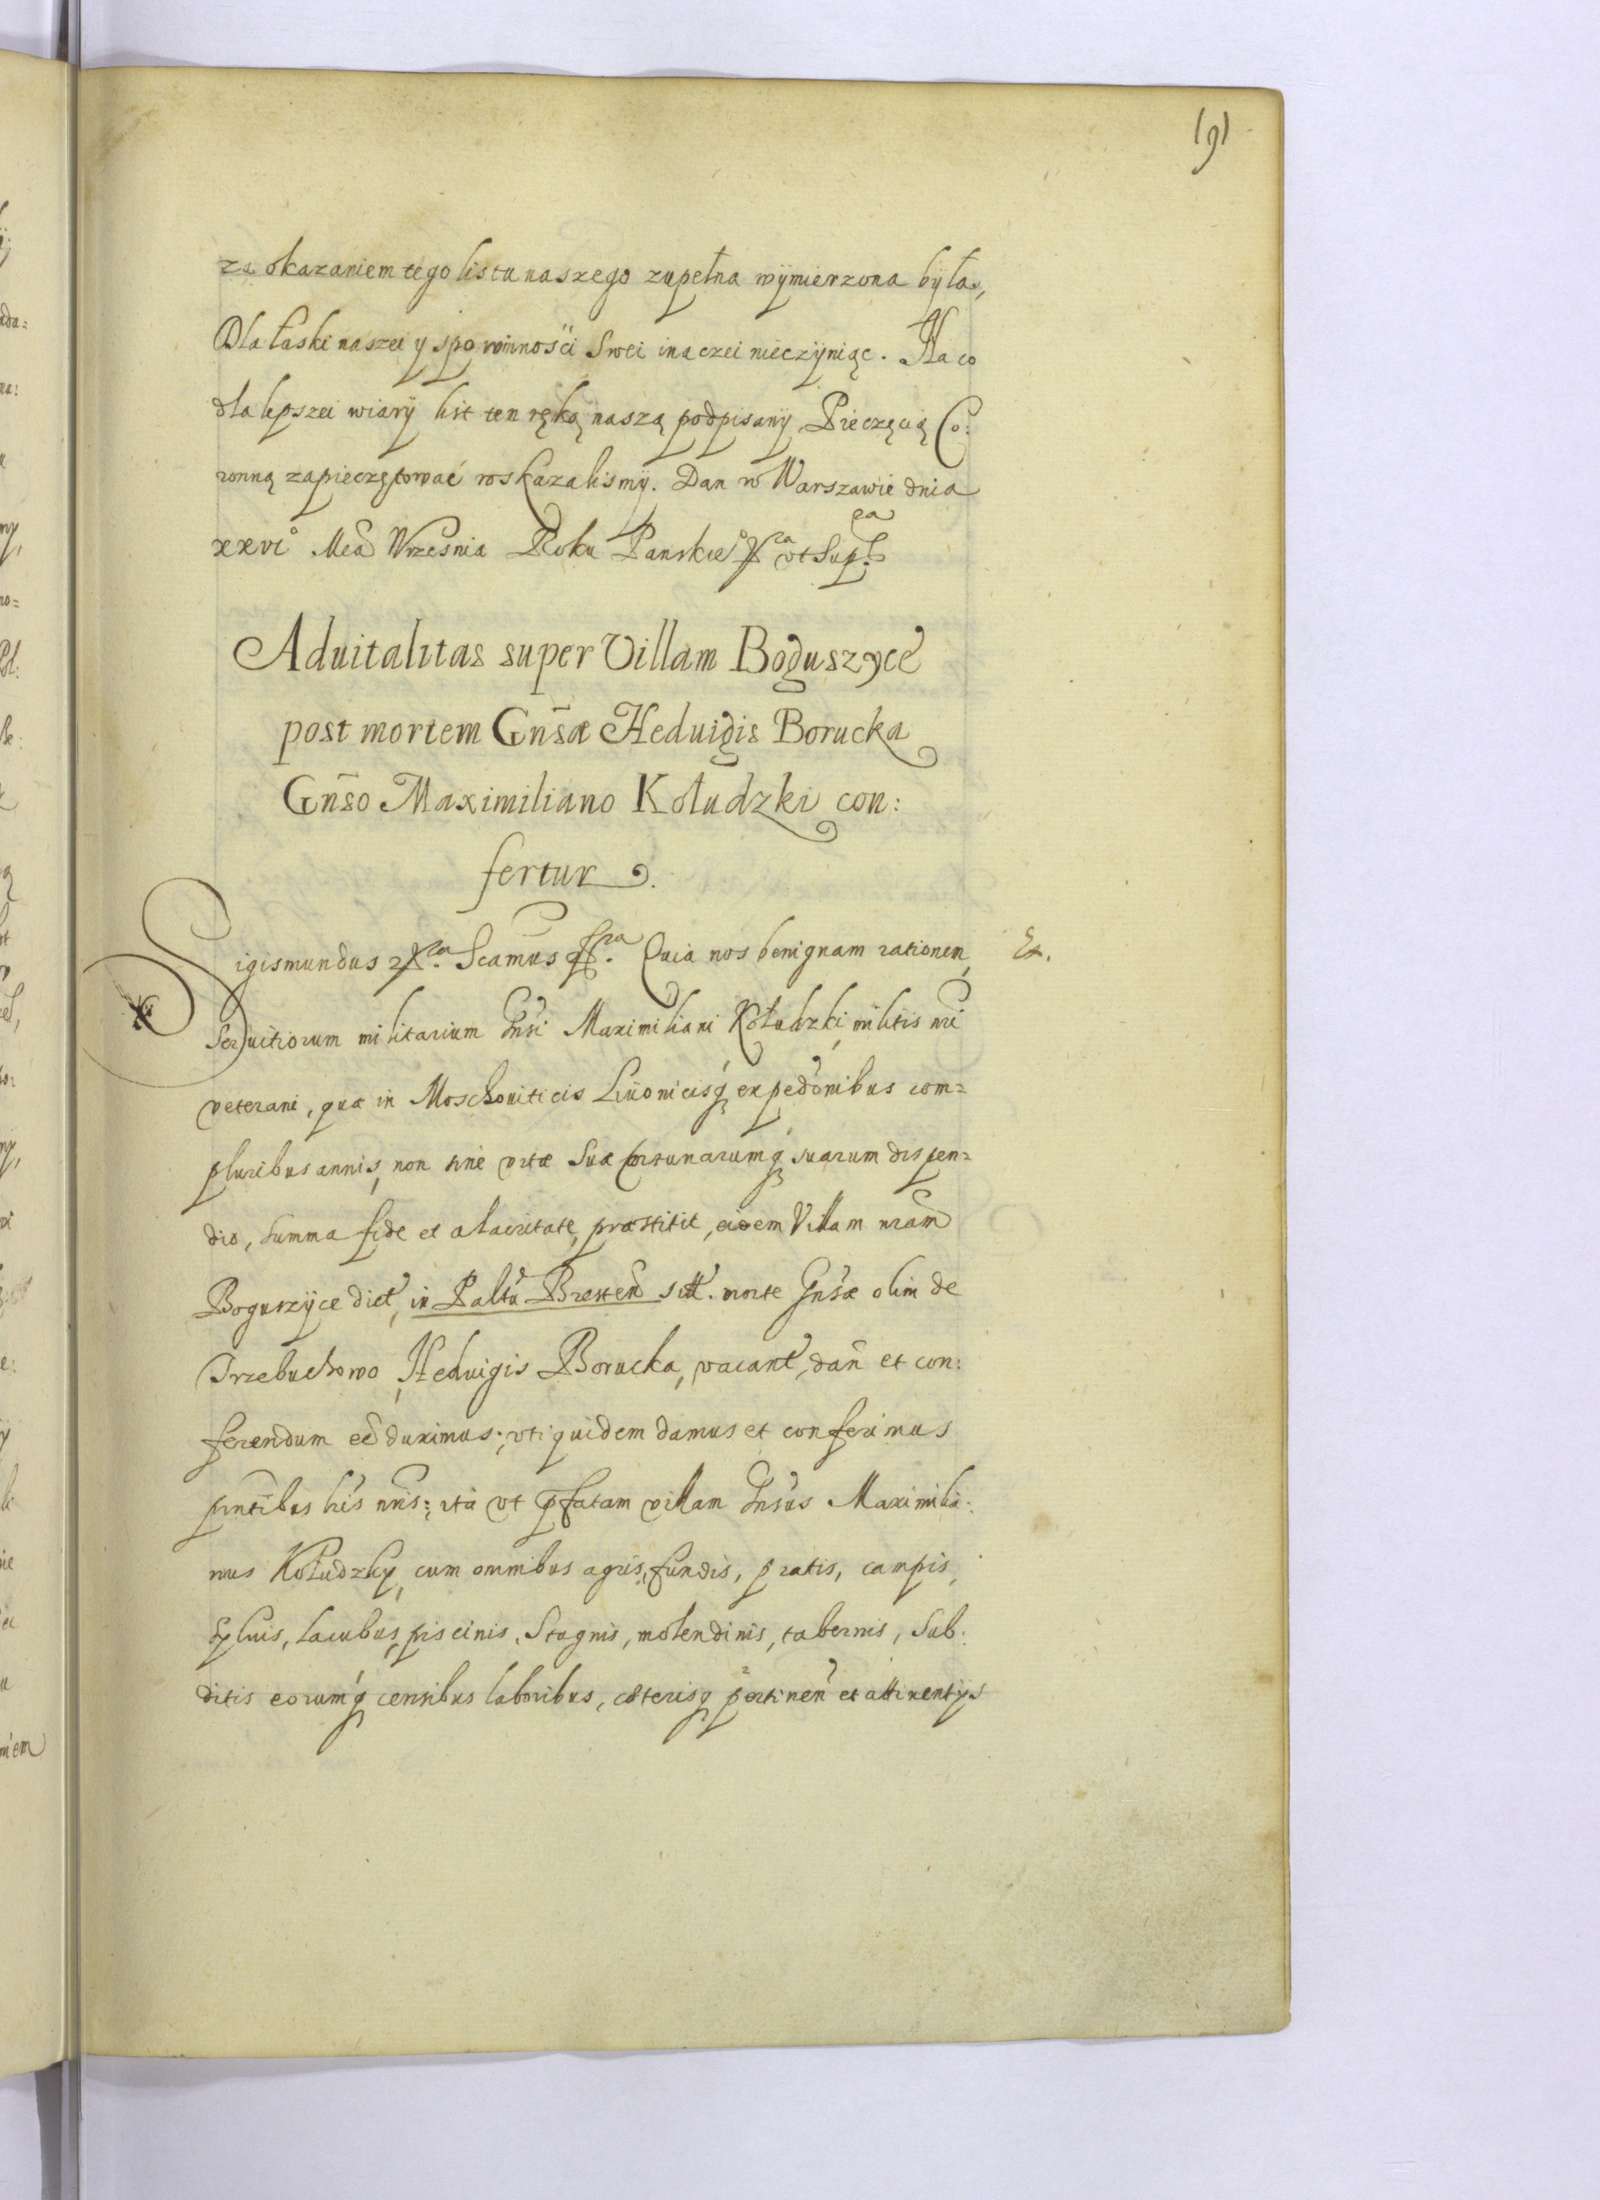 (9)
za okazaniem tego listu naszego zupełna wÿmierzona bÿła,
Dla łaski naszei y spowinnosći swei inaczei nieczÿniąc. Na co
dla lepszei wiarÿ list ten ręką naszą podpisanÿ, Pieczęcią Co:
ronną zapieczętować roskazalismÿ. Dan w Warszawie dnia
xxvi° Mcã Wrzesnia Roku Panskie° ut Supra
Aduitalitas super Villam Boguszyce
post mortem Gñsæ Heduigis Borucka
Gñso Maximiliano Kołudzki con:
fertur.
Sigismundus Scamus Quia nos benignam rationem
Seruitiorum militarium Gñsi Maximiliani Kołudzki, militis nri
veterani, quæ in Moschouiticis Liuonicisq expedõnibus com=
pluribus annis, non sine vitæ suæ fortunarumq suarum dispen=
dio, summa fide et alacritate, præstitit, eidem Villam nram
Boguszÿce dict, in Paltu Bresten sitt. morte Gnsæ olim de
Trzebuchowo Heduigis Borucka, vacant, dañ et con:
ferendum eẽ duximus; vti quidem damus et conferimus
pntibus lris nris: ita vt pfatam villam Gnsus Maximilia:
nus Kołudzky, cum omnibus agris, fundis, pratis, campis,
Syluis, lacubus, piscinis, Stagnis, molendinis, tabernis, Sub:
ditis eorumq censibus laboribus, cæterisq pertineñ et attinentijs